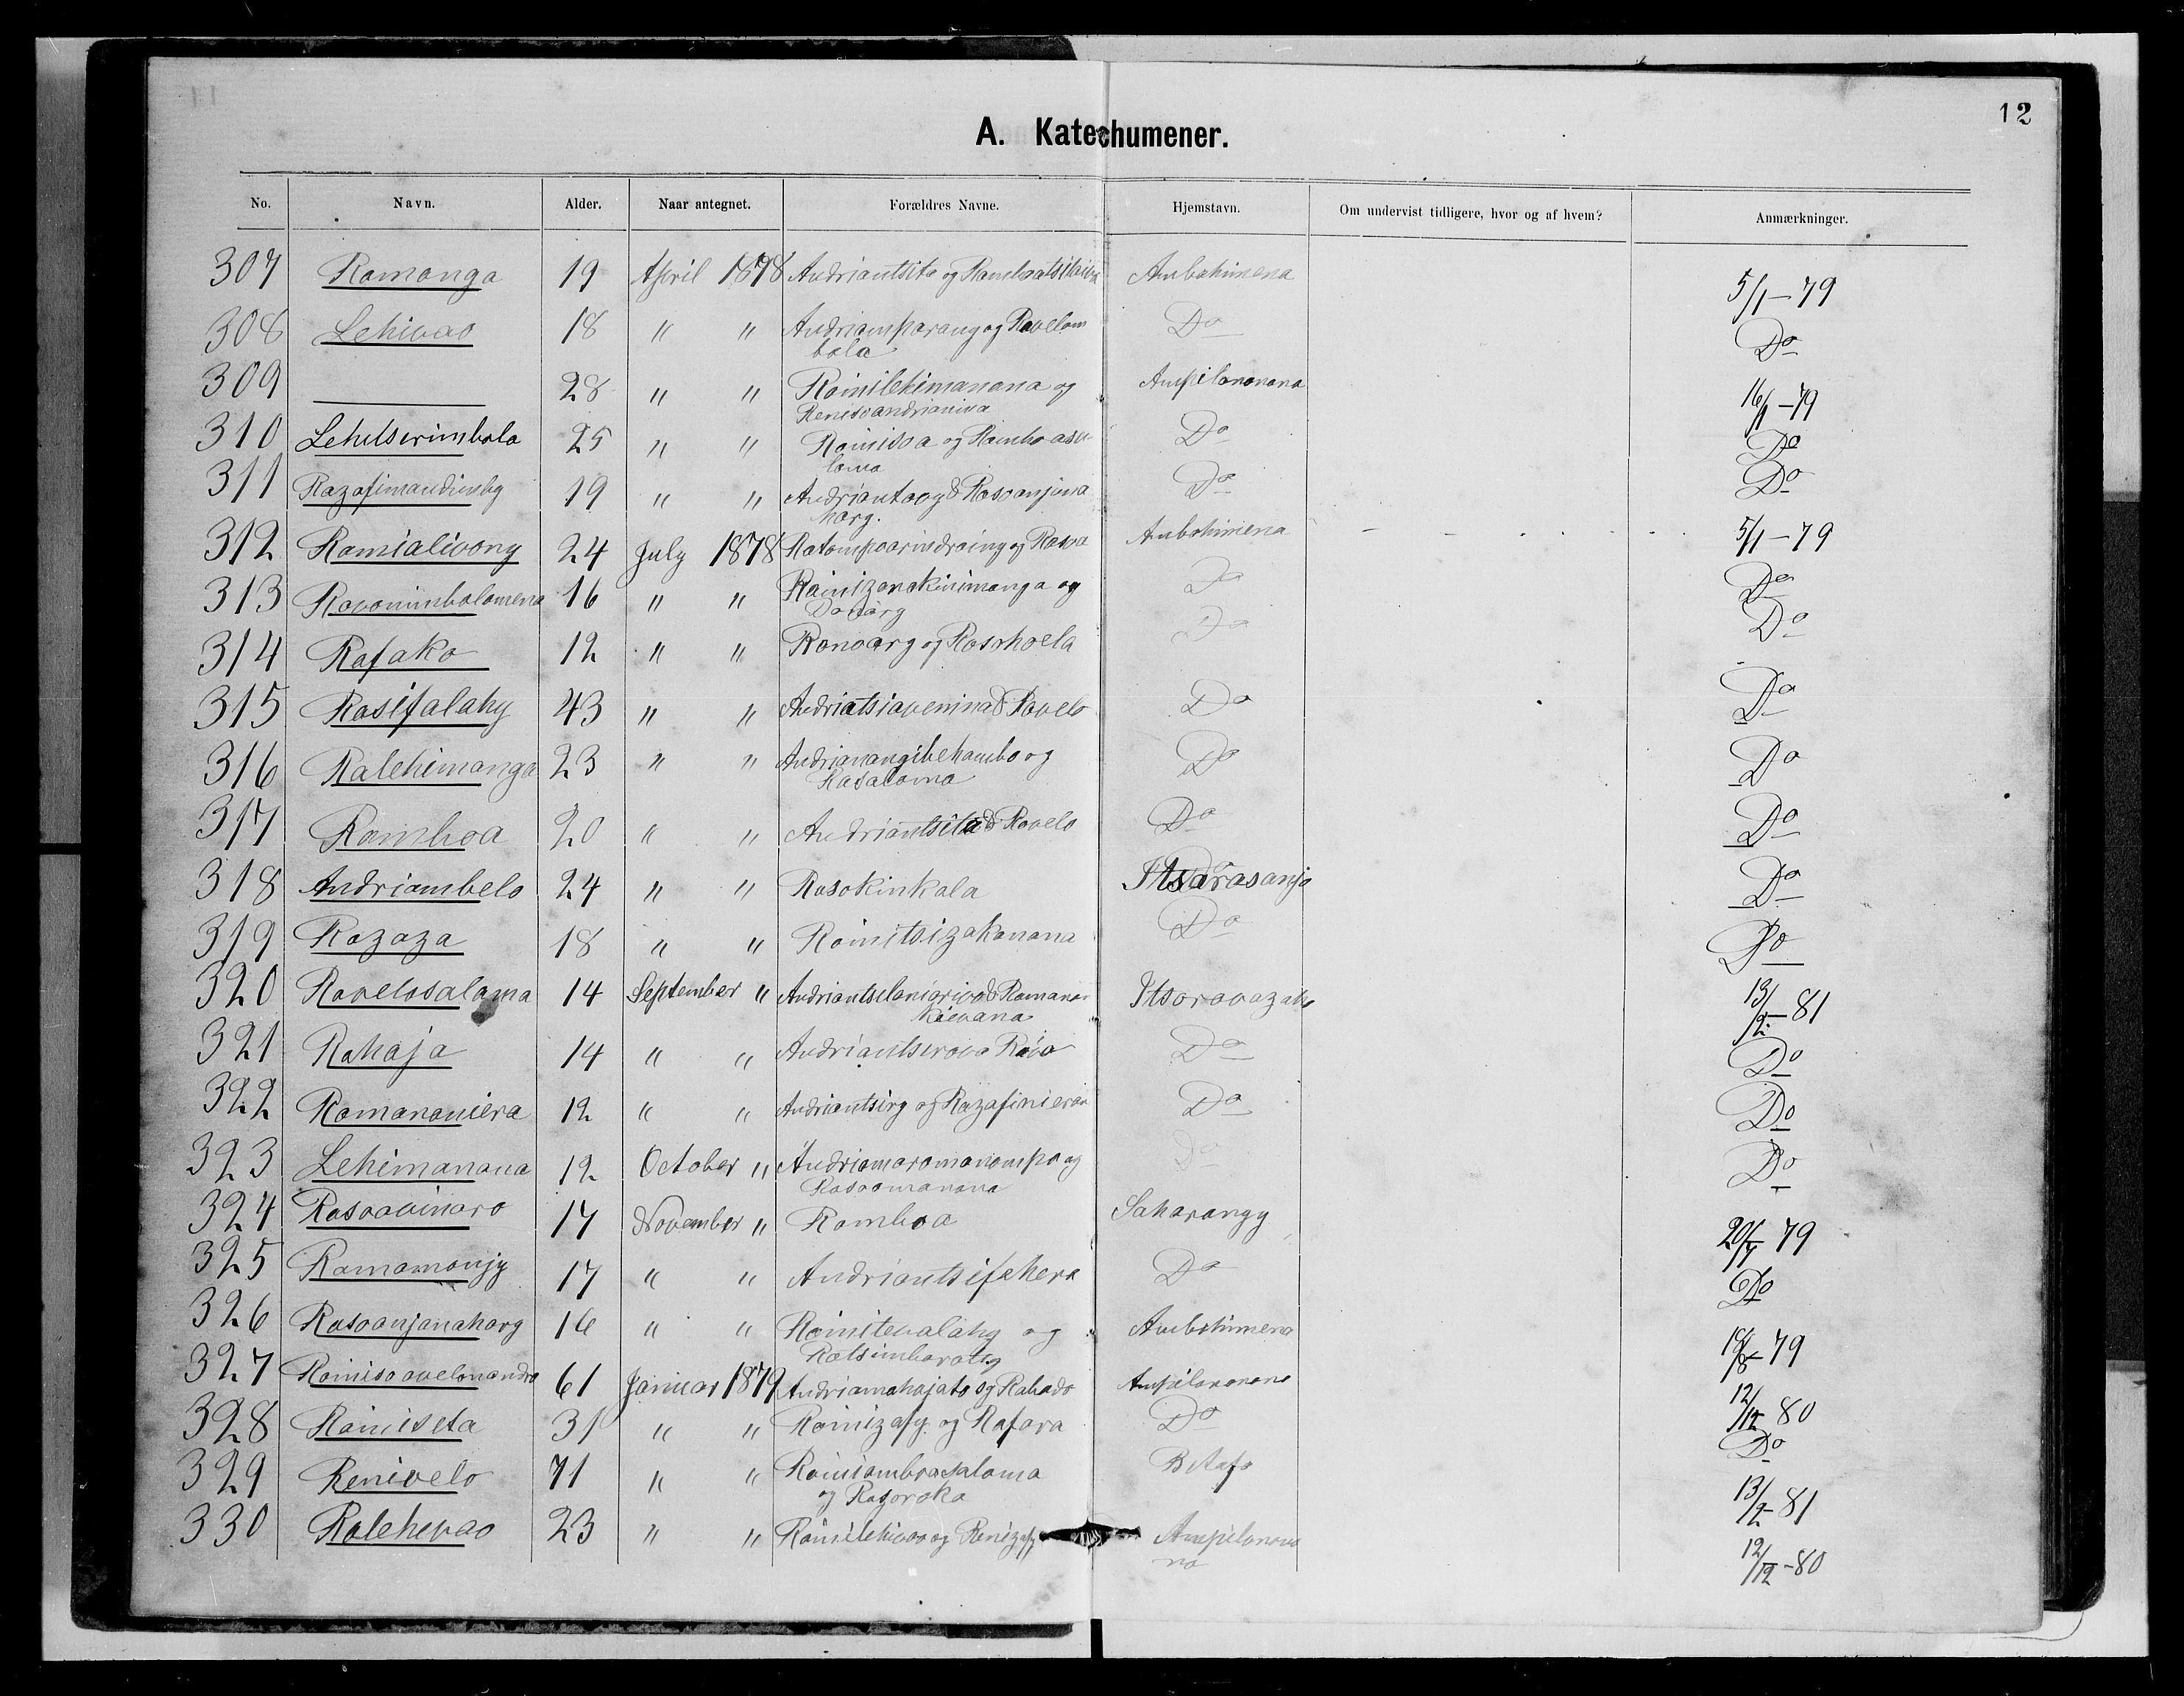 12
A. Katechumener.
No. Navn. Alder. Naar antegnet. Forældres Navne. Hjemstavn. Om undervist tidligere, hvor og af hvem? Anmærkninger.
307 Ramanga 19 April 1878 Andriantsita og Ambohimena 5/1-79
308 Lehivao 18 " " Andriamparany og Ravelom Do Do
bola
309 28 " " Rainilehimanana og Ampilanonana 16/1-79
Renisoandrianiva
310 Lehitsirimbola 25 " " Rainisoa og Ramboasa Do Do
lama
311 Razafimandimby 19 " " Andriantaog & Rasoanjana Do Do
harg.
312 Ramialivony 24 July 1878 Ratompoarindrainy og Rasoa Ambohimena 5/1-79
313 Ravonimbolamena 16 " " Rainizanakinimanga og Do Do
314 Rafako 12 " " Ranoarg og Rasohoela Do Do
315 Rasifalahy 43 " " Andriatsiavenina & Ravelo Do Do
316 Ralehimanga 23 " " Andrianangibehambo og Do Do
Rasalama
317 Ramboa 20 " " Andriantsita & Ravelo Do Do
318 Andriambelo 24 " " Rasokinkala Itsarasanjo Do
319 Razaza 18 " " Rainitsizakanana Do Do
320 Ravelosalama 14 September " Andriantsilaniarivo & Ramanan Itsaravazaha 13/2-81
kievana
321 Rahaja 14 " " Andriantsirova Raivo Do Do
322 Ramananiera 12 " " Andriantsirg og Razafinieran Do Do
323 Lehimanana 12 October " Andriamaromanompo og Do Do
Rasoamanana
324 Rasoavinaro 17 November " Ramboa Saharangy 20/7-79
325 Ramamonjy 17 " " Andriantsifehera Do Do
326 Rasoanjanaharg 16 " " Rainitevalahy og Ambohimena 18/8-79
Ratsimbarahy
327 Rainisoavelomandro 61 Januar 1879 Andriamahajato og Rabado Ampilanonana 12/12-80
328 Rainiseta 31 " " Rainizafy og Rafara Do Do
329 Renivelo 71 " " Rainiamboasalama Betafo 13/2-81
og Razoroka
330 Ralehevao 23 " " Rainilehivao og Renizafy Ampilanona 12/12-80
na